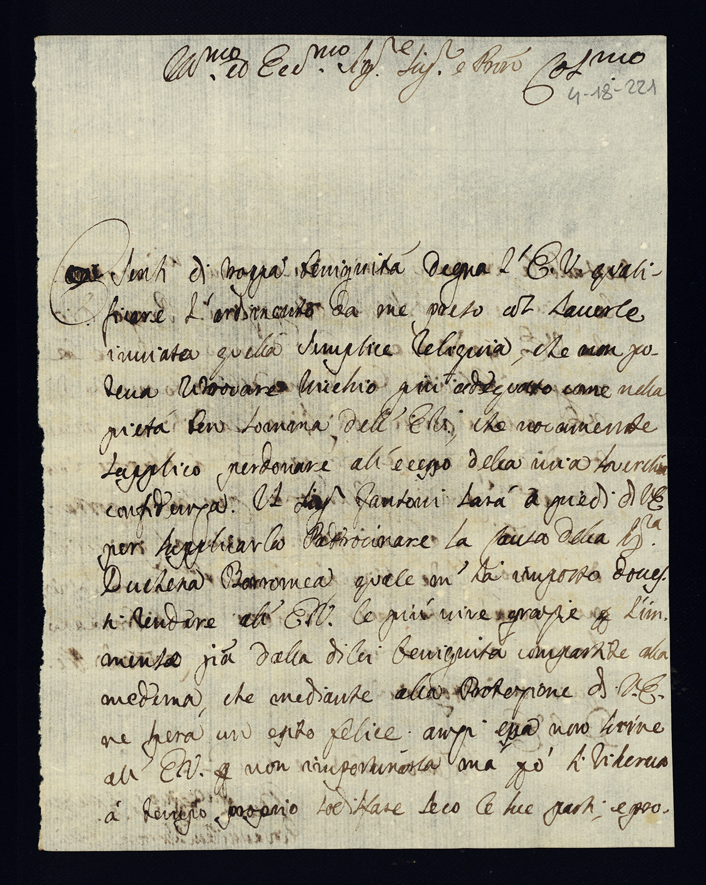 Ill.mo ed Ecc.mo Sig.re Sig.r e Pron Col.mo
4-18-221
Con Senti di troppa benignità degna l'E.V. quali-
ficare l'ardimento da me preso col hauerle
inuiata quella semplice Reliquia, che non po-
teua trouare Nicchio più adeguato come nella
pietà ben somma dell'E.V., che nouamente
supplico perdonare all'ecesso della mia souerchia
confidenza. Il Sig.r Fantoni sarà à piedi di V.E.
per supplicarla Patrocinare la causa della S.ra
Duchessa Borromea quale m'hà imposto doues.
ti rendare all'E.V. le più uiue grazie
già dalla di lei benignità compartite alla
medema, che mediante alla Protezione di V.E.
ne spera un esito felice. anzi essa non scriue
all'E.V. p non importunarla mà però si riserua
à tempo proprio sodisfare seco le sue parti, e pro-